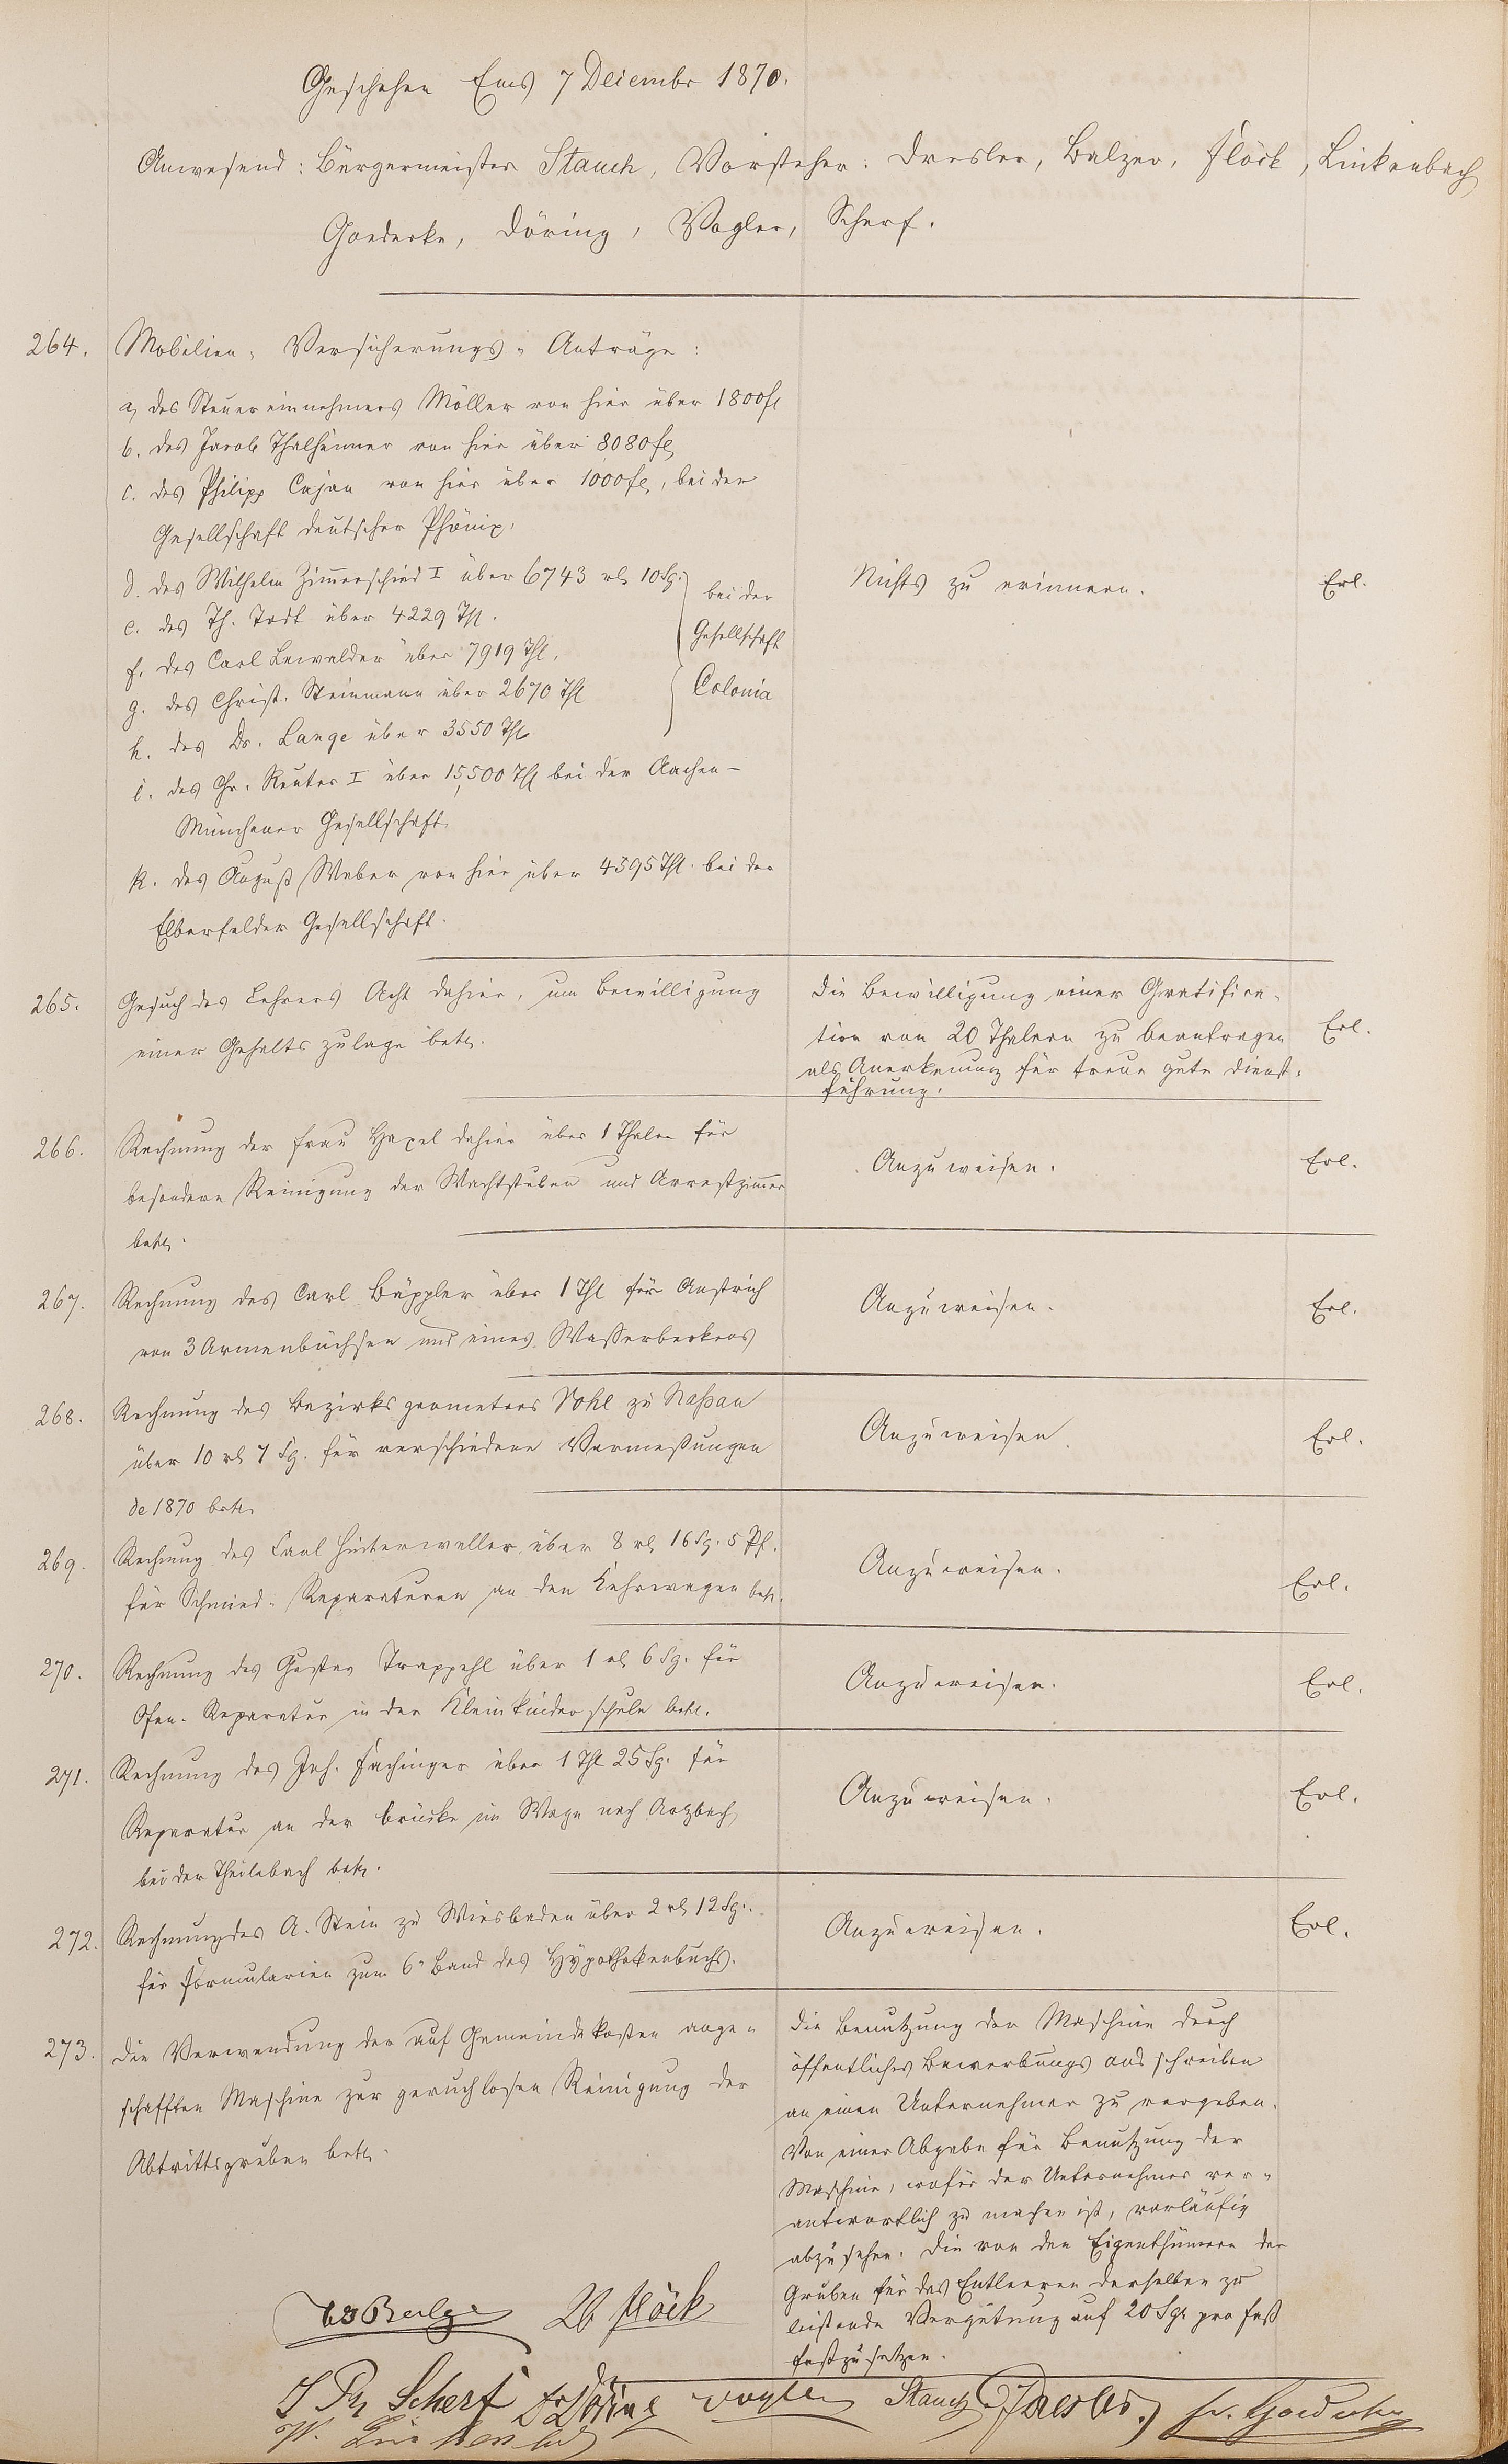 Geschehen Ems 7 Decembr 1870.
Anwesend: Bürgermeister Stauch, Vorsteher: Dresler, Balzer, Flöck, Linkenbach
Goedecke, Döring, Vogler, Scherf.
264. Mobilien-Versicherungs-Anträge:
a, des Steuereinnehmers Möller von hier über 1800 fl
b. des Jacob Thalheimer von hier über 8080 fl,
c. des Philipp Cajan von hier über 1000 fl, bei der
Gesellschaft deutscher Phönix.
d. des Wilhelm Zimerschied I über 6743 rl 10 Sg.
e. des Th. Todt über 4229 Thl.
f. des Carl Lewalder über 7919 Thl.
g. des Christ. Steinmann über 2670 Thl
h. des Dr. Lange über 3550 Thl
bei der
Gesellschaft
Colonia
i. des Chr. Reuter I über 15,500 Thl bei der Aachen-
Münchener Gesellschaft.
k. des August Weber von hier über 4395 Thl. bei der
Elberfelder Gesellschaft.
Nichts zu erinnern.
Erl.
265. Gesuch des Lehrers Acht dahier, um Bewilligung
einer Gehaltszulage betr.
Die Bewilligung einer Gratifica-
tion von 20 Thalern zu beantragen
als Anerkennung für treue gute Dienst-
führung.
Erl.
266. Rechnung der Frau Hazel dahier über 1 Thaler für
besondere Reinigung der Wachtstuben und Arrestzimer
betr.
Anzuweisen.
Erl.
267. Rechnung des Carl Büppler über 1 Thl für Anstrich
von 3 Armenbüchsen und eines Wasserbeckens
Anzuweisen.
Erl.
268. Rechnung des Bezirksgeometers Vohl zu Naßau
über 10 rl 7 Sg. für verschiedene Vermeßungen
de 1870 betr.
Anzuweisen
Erl.
269. Rechnung des Carl Hinterweller über 8 rl 16 Sg. 5 Pf.
für Schmied-Reparaturen an den Kehrwagen betr.
Anzuweisen.
Erl.
270. Rechnung des Gustav Trappehl über 1 rl 6 Sg. für
Ofen-Reparatur in der Kleinkinderschule betr.
Anzuweisen.
Erl.
271. Rechnung des Joh. Fachinger über 1 Thl 25 Sg. für
Reparatur an der Brücke im Wege nach Arzbach
bei der Theilebach betr.
Anzuweisen.
Erl.
272. Rechnung des A. Stein zu Wiesbaden über 2 rl 12 Sg.
für Formularien zum 6n Band des Hypothekenbuchs.
Anzuweisen.
Erl.
273. Die Verwendung der auf Gemeindekosten ange-
schafften Maschine zur geruchlosen Reinigung der
Abtrittsgruben betr.
Die Benutzung der Maschine durch
öffentliches Bewerbungsausschreiben
an einen Unternehmer zu vergeben.
Von einer Abgabe für Benutzung der
Maschine, wofür der Unternehmer ver-
antwortlich zu machen ist, vorläufig
abzusehen. Die von den Eigenthümern der
Gruben für das Entleeren derselben zu
leistende Vergütung auf 20 Sgr pro Faß
festzusetzen.
Balzer Flöck
Scherf Dr Döring Vogler Stauch Dresler. Fr. Goedecke
W. Linkenbach